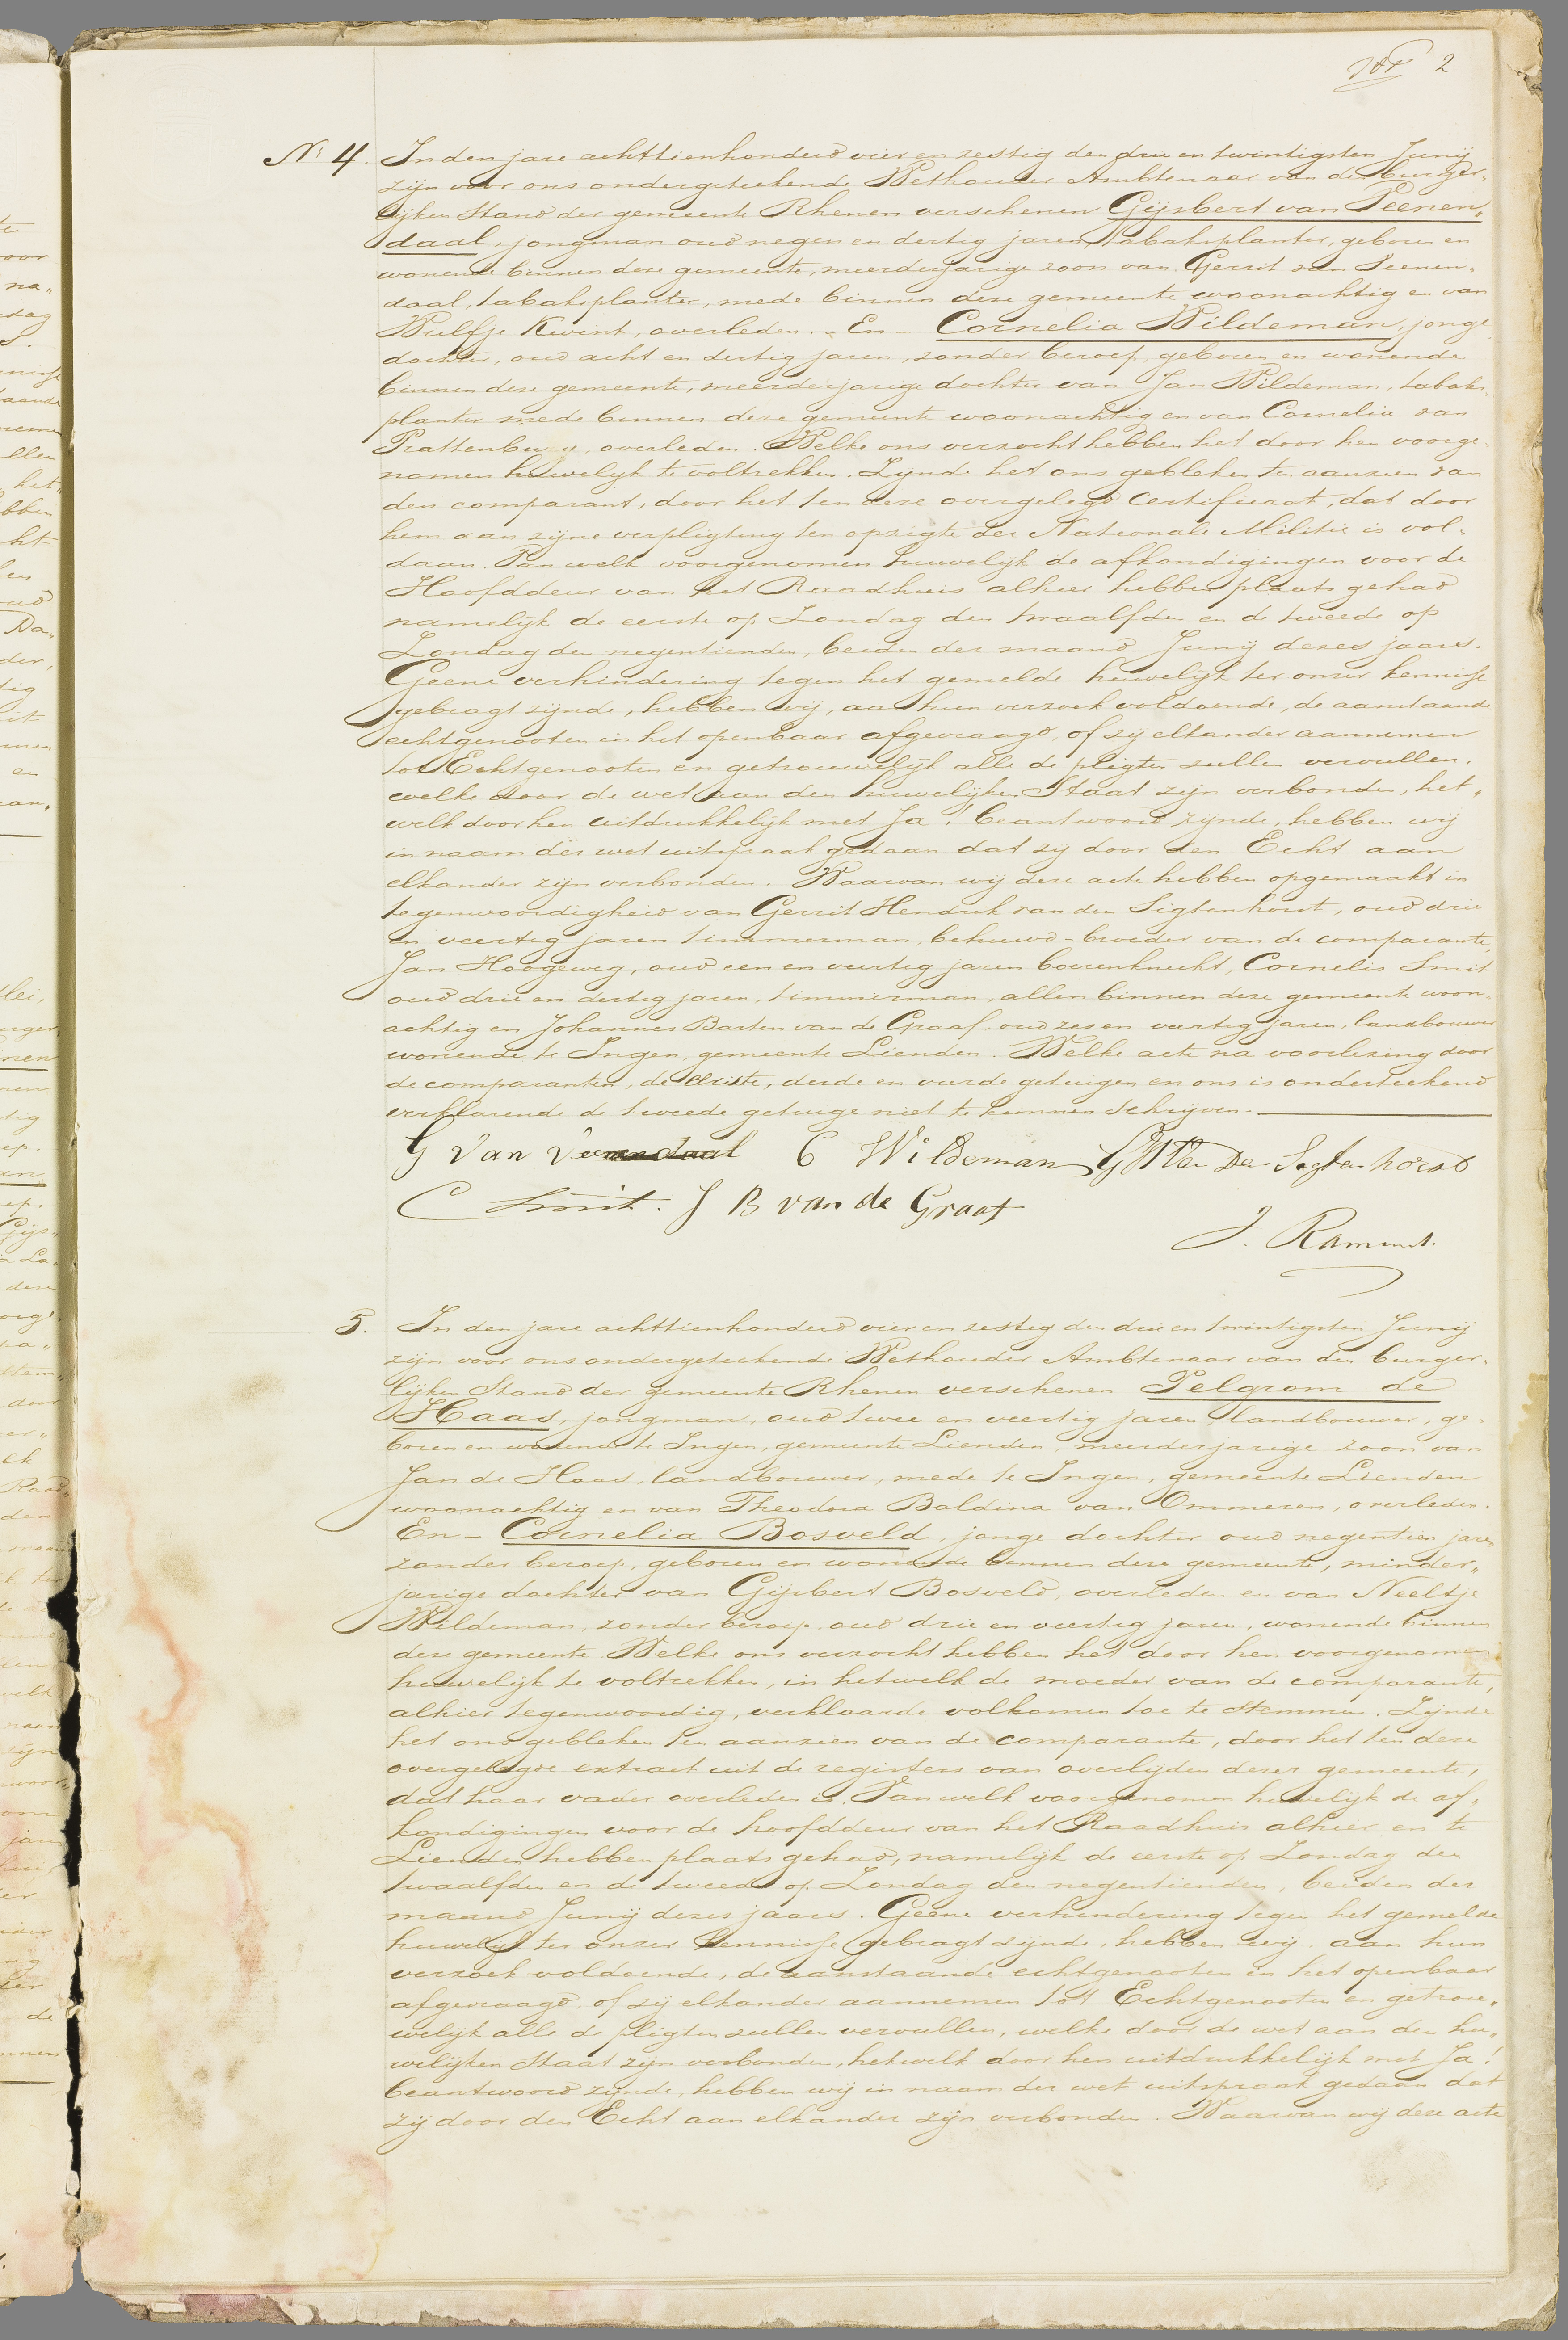 2
N: 4. In den jare achttienhonderd vier en zestig den drie en twintigsten Junij
zijn voor ons ondergeteekende Wethouder Ambtenaar van den burger„
lijken Stand der gemeente Rhenen verschenen Gijsbert van Veenen„
daal, jongman oud negen en dertig jaren, tabaksplanter, geboren en
wonende binnen deze gemeente, meerderjarige zoon van Gerrit van Veenen„
daal, tabaksplanter, mede binnen deze gemeente woonachtig en van
Wulfje Kwint, overleden. - En - Cornelia Wildeman, jonge
dochter, oud acht en dertig jaren, zonder beroep, geboren en wonende
binnen deze gemeente, meerderjarige dochter van Jan Wildeman, tabaks„
planter mede binnen deze gemeente woonachtig en van Cornelia van
Prattenburg, overleden. Welke ons verzocht hebben het door hen voorge„
nomen huwelijk te voltrekken. Zijnde het ons gebleken ten aanzien van
den comparant, door het ten deze overgelegd Certificaat, dat door
hem aan zijne verpligting ten opzigte der Nationale Militie is vol„
daan. Van welk voorgenomen huwelijk de afkondigingen voor de
Hoofddeur van het Raadhuis alhier hebben plaats gehad
namelijk de eerste op Zondag den twaalfden en de tweede op
Zondag den negentienden, beiden der maand Junij dezes jaars.
Geene verhindering tegen het gemelde huwelijk ter onzer kennisse
gebragt zijnde, hebben wij, aan hun verzoek voldoende, de aanstaande
echtgenooten in het openbaar afgevraagd, of zij elkander aannemen
tot Echtgenooten en getrouwelijk alle de pligten zullen vervullen,
welke door de wet aan den huwelijken Staat zijn verbonden, het„
welk door hen uitdrukkelijk met Ja! beantwoord zijnde, hebben wij
in naam der wet uitspraak gedaan dat zij door den Echt aan
elkander zijn verbonden. Waarvan wij deze acte hebben opgemaakt in
tegenwoordigheid van Gerrit Hendrik van den Sigtenhorst, oud drie
en veertig jaren timmerman, behuwd-broeder van de comparante,
Jan Hoogeweg, oud een en veertig jaren boerenknecht, Cornelis Smit
oud drie en dertig jaren, timmerman, allen binnen deze gemeente woon„
achtig en Johannes Barten van de Graaf, oud zes en veertig jaren, landbouwer
wonende te Ingen, gemeente Lienden. Welke acte na voorlezing door
de comparanten, de eerste, derde en vierde getuigen en ons is onderteekend
verklarende de tweede getuige niet te kunnen schrijven.
G van Veenendaal C Wildeman G H van Den Sigtenhorst
C Smit. J B van de Graaf
J. Ramment.
5. In den jare achttienhonderd vier en zestig den drie en twintigsten Junij
zijn voor ons ondergeteekende Wethouder Ambtenaar van den burger„
lijken Stand der gemeente Rhenen verschenen Pelgrom de
Haas, jongman, oud twee en veertig jaren, landbouwer, ge„
boren en wonende te Ingen, gemeente Lienden, meerderjarige zoon van
Jan de Haas, landbouwer, mede te Ingen, gemeente Lienden
woonachtig en van Theodora Baldina van Ommeren, overleden.
En - Cornelia Bosveld, jonge dochter oud negentien jaren
zonder beroep, geboren en wonende binnen deze gemeente, minder„
jarige dochter van Gijsbert Bosveld, overleden en van Neeltje
Wildeman, zonder beroep, oud drie en veertig jaren, wonende binnen
deze gemeente. Welke ons verzocht hebben het door hen voorgenomen
huwelijk te voltrekken, in hetwelk de moeder van de comparante,
alhier tegenwoordig, verklaarde volkomen toe te stemmen. Zijnde
het ons gebleken ten aanzien van de comparante, door het ten deze
overgelegde extract uit de registers van overlijden dezer gemeente,
dat haar vader overleden is. Van welk voorgenomen huwelijk de af„
kondigingen voor de hoofddeur van het Raadhuis alhier en te
Lienden hebben plaats gehad, namelijk de eerste op Zondag den
twaalfden en de tweede op Zondag den negentienden, beiden der
maand Junij dezes jaars. Geene verhindering tegen het gemelde
huwelijk ter onzer kennisse gebragt zijnde, hebben wij aan hun
verzoek voldoende, de aanstaande echtgenooten in het openbaar
afgevraagd, of zij elkander aannemen tot Echtgenooten en getrou„
welijk alle de pligten zullen vervullen, welke door de wet aan den hu„
welijken Staat zijn verbonden, hetwelk door hen uitdrukkelijk met Ja!
beantwoord zijnde, hebben wij in naam der wet uitspraak gedaan dat
zij door den Echt aan elkander zijn verbonden. Waarvan wij deze acte